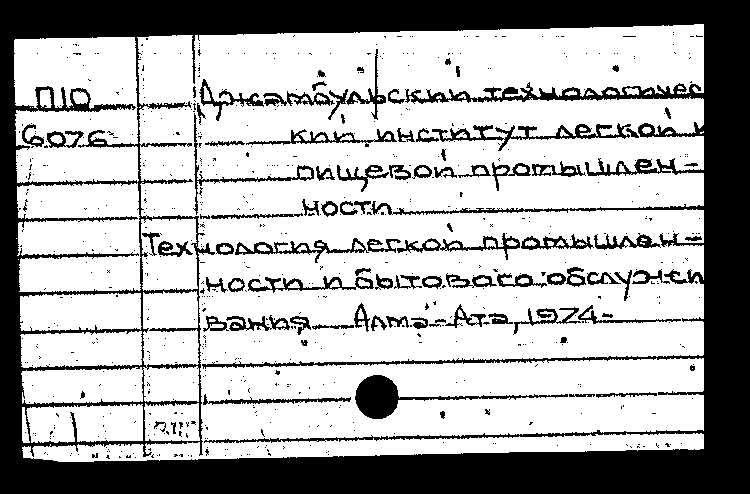 П10 Джамбульский технологичес
6076 кий институт легкой и
пищевой промышлен-
ности.
Технология легкой промышлен-
ности и бытового обслужи
вания Алма-Ата, 1974-